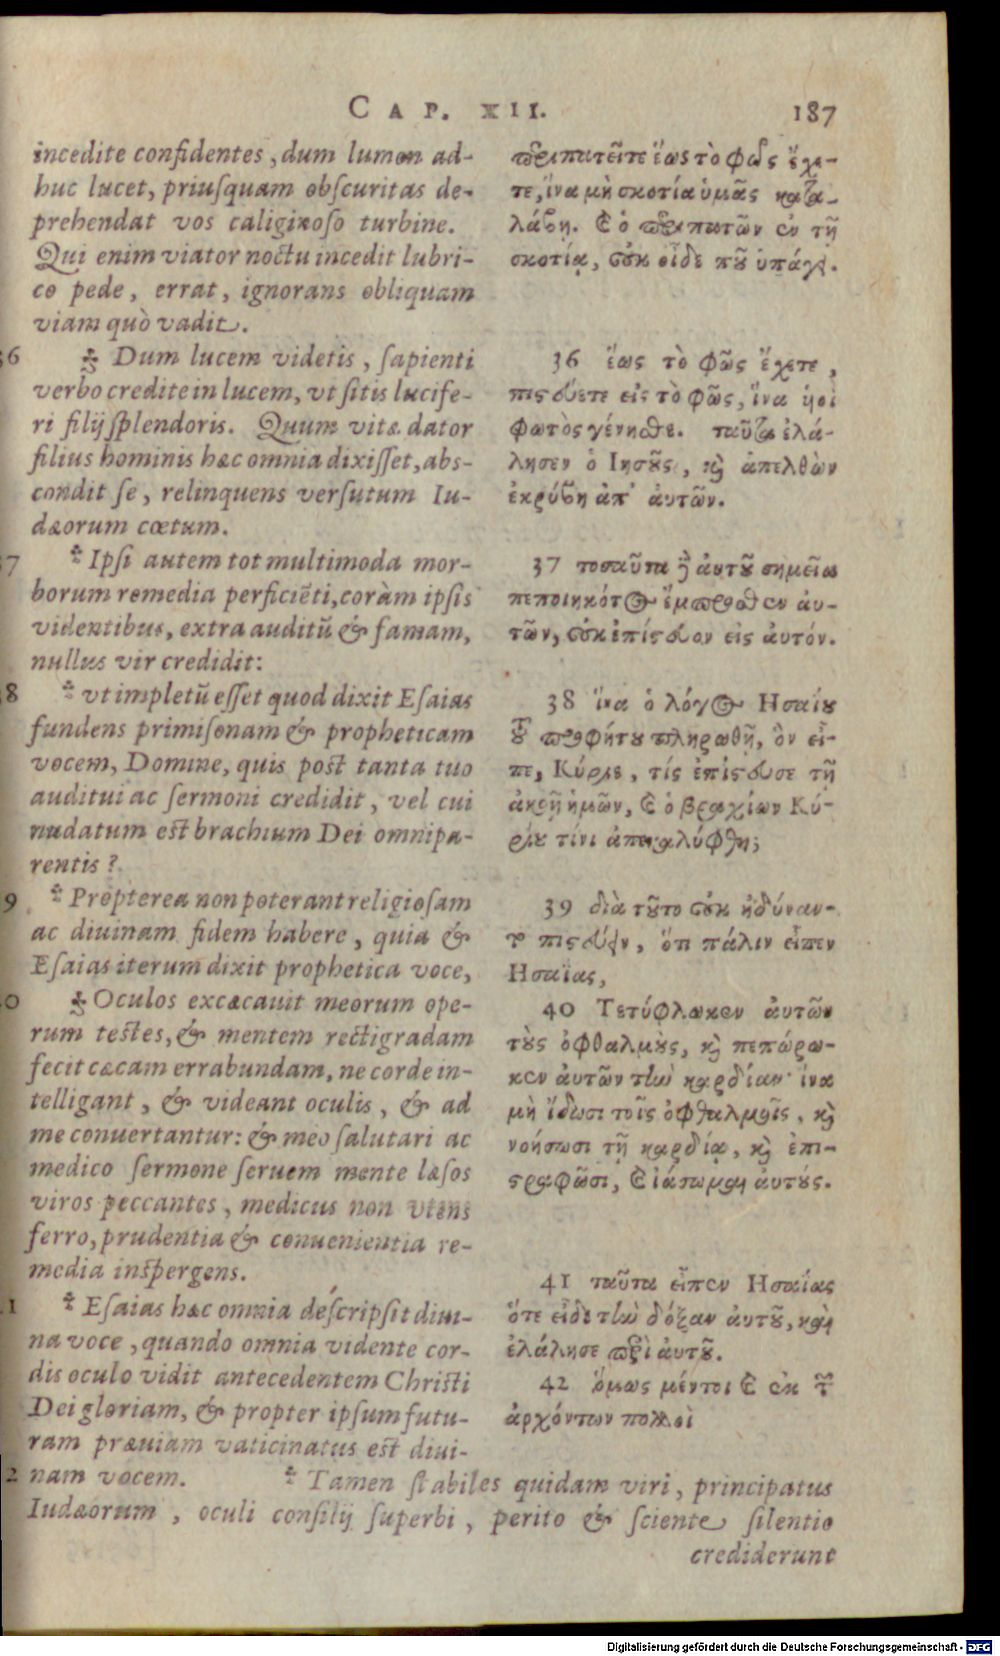 CAP. XII. 187
incedite confidentes, dum lumen ad-
huc lucet, priuſquam obſcuritas de-
prehendat vos caliginoſo turbine.
Qui enim viator noctu incedit lubri-
co pede, errat, ignorans obliquam
viam quò vadit.
36 ⁜ Dum lucem videtis, ſapienti
verbo credite in lucem, vt ſitis lucife-
ri filij ſplendoris. Quum vitæ dator
filius hominis hæc omnia dixiſſet, abs-
condit ſe, relinquens verſutum Iu-
dæorum cœtum.
37 ⁜ Ipſi autem tot multimoda mor-
borum remedia perficiẽti, coràm ipſis
videntibus, extra auditũ & famam,
nullus vir credidit:
38 ⁜ vt impletũ eſſet quod dixit Eſaias
fundens primiſonam & propheticam
vocem, Domine, quis post tanta tuo
auditui ac ſermoni credidit, vel cui
nudatum est brachium Dei omnipa-
rentis?
39 ⁜ Propterea non poterant religioſam
ac diuinam fidem habere, quia &
Eſaias iterum dixit prophetica voce,
40 ⁜ Oculos excæcauit meorum ope-
rum testes, & mentem rectigradam
fecit cæcam errabundam, ne corde in-
telligant, & videant oculis, & ad
me conuertantur: & meo ſalutari ac
medico ſermone ſeruem mente læſos
viros peccantes, medicus non vtens
ferro, prudentia & conuenientia re-
media inſpergens.
41 ⁜ Eſaias hæc omnia deſcripſit diui-
na voce, quando omnia vidente cor-
dis oculo vidit antecedentem Christi
Dei gloriam, & propter ipſum futu-
ram præuiam vaticinatus est diui-
nam vocem.
περιπατεῖτε ἕως τὸ φῶς ἔχε-
τε, ἵνα μὴ σκοτία ὑμᾶς κατα-
λάβῃ. καὶ ὁ περιπατῶν ἐν τῇ
σκοτίᾳ, οὐκ οἶδε ποῦ ὑπάγει.
36 ἕως τὸ φῶς ἔχετε,
πιστεύετε εἰς τὸ φῶς, ἵνα υἱοὶ
φωτὸς γένησθε. ταῦτα ἐλά-
λησεν ὁ Ιησοῦς, καὶ ἀπελθὼν
ἐκρύβη ἀπ' ἀυτῶν.
37 τοσαῦτα δὲ ἀυτοῦ σημεῖα
πεποιηκότος ἔμπροσθεν ἀυ-
τῶν, οὐκ ἐπίστευον εἰς ἀυτόν.
38 ἵνα ὁ λόγος Ησαΐου
τοῦ προφήτου πληρωθῇ, ὃν εἶ-
πε, Κύριε, τίς ἐπίστευσε τῇ
ἀκοῇ ἡμῶν, καὶ ὁ βραχίων Κυ-
ρίου τίνι ἀπεκαλύφθη;
39 διὰ τοῦτο οὐκ ἠδύναν-
το πιστεύειν, ὅτι πάλιν εἶπεν
Ησαΐας,
40 Τετύφλωκεν ἀυτῶν
τοὺς ὀφθαλμοὺς, καὶ πεπώρω-
κεν ἀυτῶν τὴν καρδίαν· ἵνα
μὴ ἴδωσι τοῖς ὀφθαλμοῖς, καὶ
νοήσωσι τῇ καρδίᾳ, καὶ ἐπι-
στραφῶσι, καὶ ἰάσωμαι ἀυτούς.
41 ταῦτα εἶπεν Ησαΐας
ὅτε εἶδε τὴν δόξαν ἀυτοῦ, καὶ
ἐλάλησε περὶ ἀυτοῦ.
42 ὅμως μέντοι καὶ ἐκ τῶν
ἀρχόντων πολλοὶ
2 ⁜ Tamen stabiles quidam viri, principatus
Iudæorum, oculi conſilij ſuperbi, perito & ſciente ſilentio
crediderunt
Digitalisierung gefördert durch die Deutsche Forschungsgemeinschaft - DFG